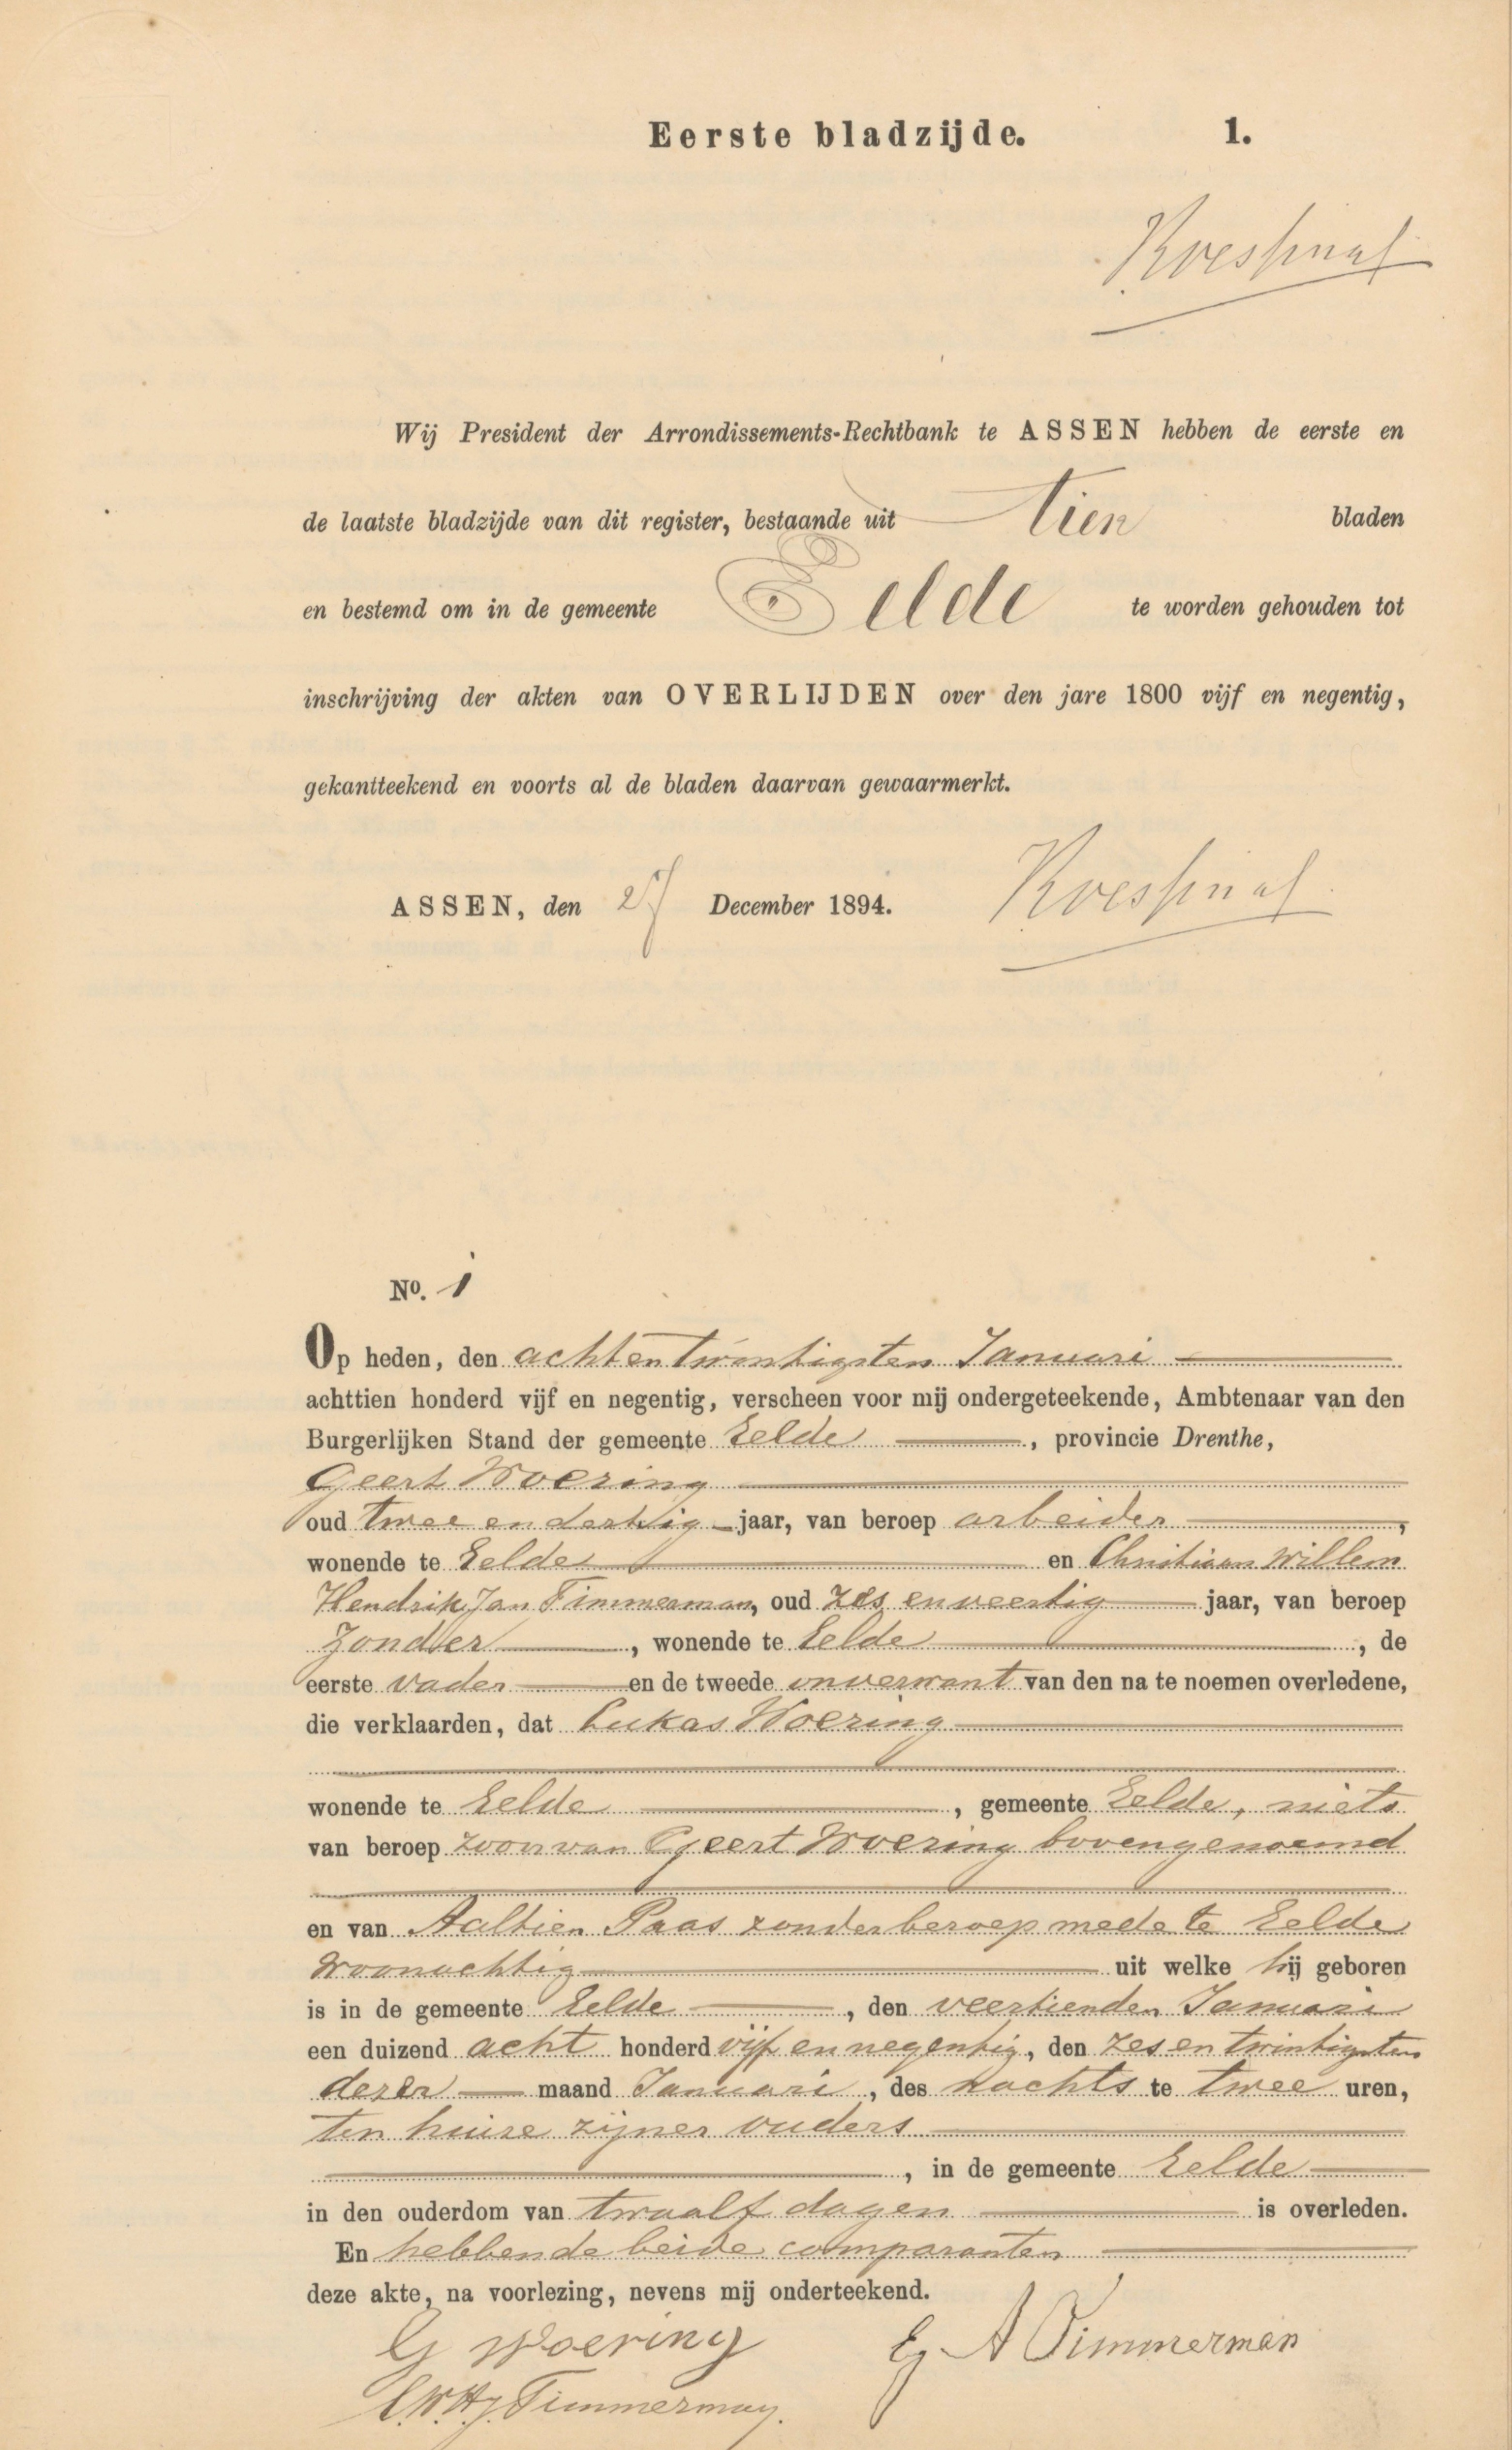 Eerste bladzijde. 1.
Wij President der Arrondissements-Rechtbank te ASSEN hebben de eerste en
de laatste bladzijde van dit register, bestaande uit tien bladen
en bestemd om in de gemeente Eelde te worden gehouden tot
inschrijving der akten van OVERLIJDEN over den jare 1800 vijf en negentig,
gekantteekend en voorts al de bladen daarvan gewaarmerkt.
ASSEN, den 27 December 1894.
No. 1
Op heden, den achtentwintigsten Januari
achttien honderd vijf en negentig, verscheen voor mij ondergeteekende, Ambtenaar van den
Burgerlijken Stand der gemeente Eelde, provincie Drenthe,
Geert Woering
oud twee en dertig jaar, van beroep arbeider,
wonende te Eelde en Christiaan Willem
Hendrik Jan Timmerman, oud zes en veertig jaar, van beroep
zonder, wonende te Eelde, de
eerste vader en de tweede onverwant van den na te noemen overledene,
die verklaarden, dat Lukas Woering
wonende te Eelde, gemeente Eelde, niets
van beroep zoon van Geert Woering bovengenoemd
en van Aaltien Paas zonder beroep mede te Eelde
woonachtig uit welke hij geboren
is in de gemeente Eelde, den veertienden Januari
een duizend acht honderd vijf en negentig, den zes en twintigsten
dezer maand Januari, des nachts te twee uren,
ten huize zijner ouders
, in de gemeente Eelde
in den ouderdom van twaalf dagen is overleden.
En hebbende beide comparanten
deze akte, na voorlezing, nevens mij onderteekend.
G Woering E. A Timmerman
C.W.H.J. Timmerman.